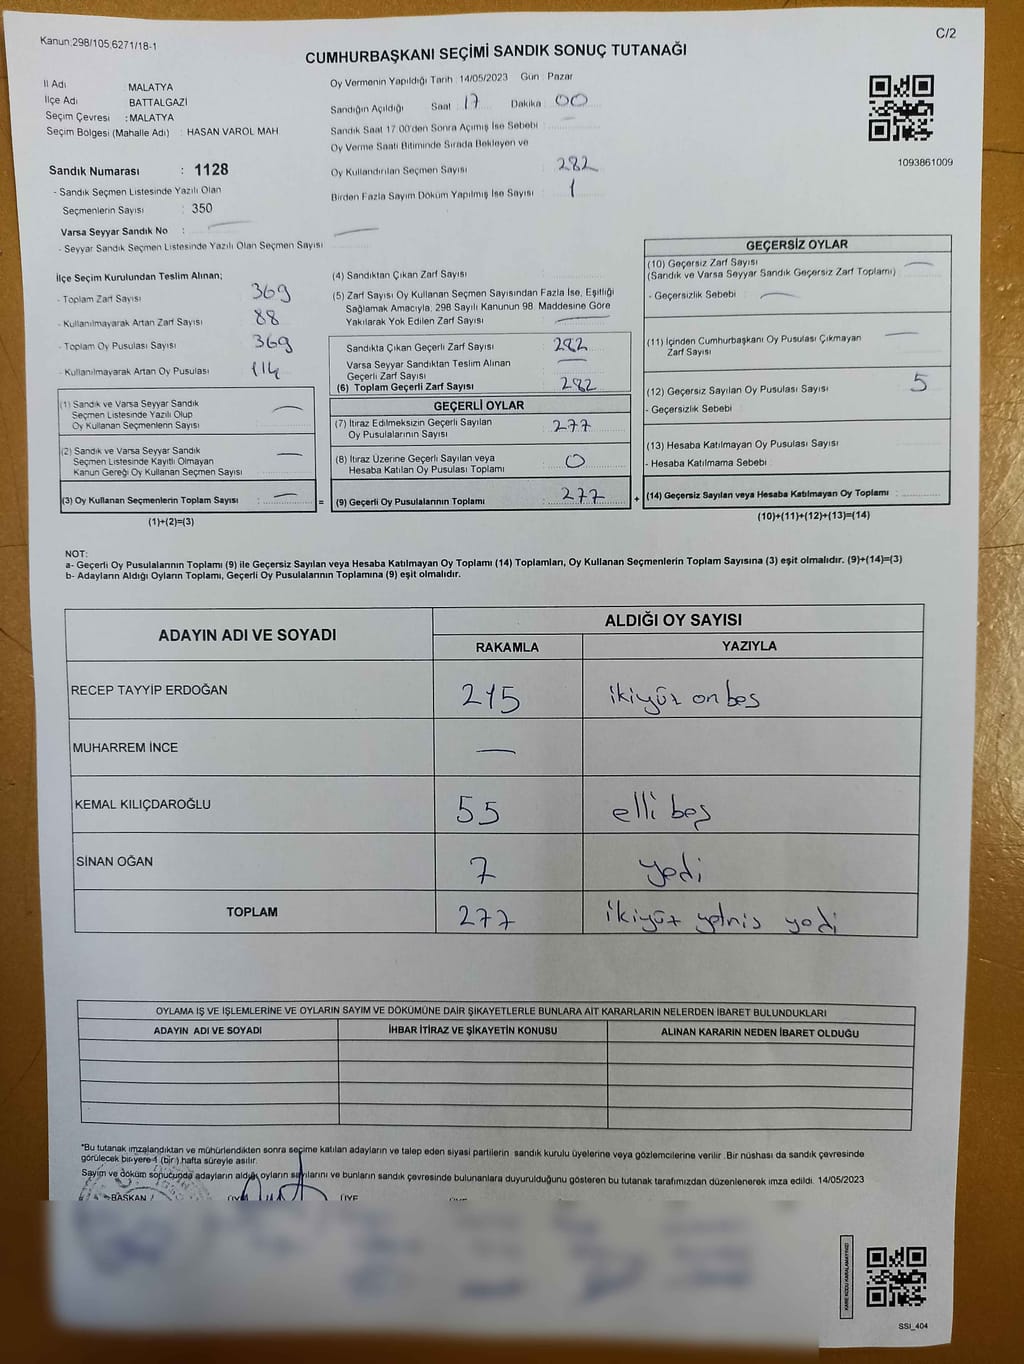 Kanun:298/105,6271/18-1
C/2
CUMHURBAŞKANI SEÇİMİ SANDIK SONUÇ TUTANAĞI
İl Adı MALATYA
İlçe Adı BATTALGAZİ
Seçim Çevresi : MALATYA
Seçim Bölgesi (Mahalle Adı) : HASAN VAROL MAH
Oy Vermenin Yapıldığı Tarih 14/05/2023 Gün Pazar
Sandığın Açıldığı Saat 17 Dakika 00
Sandık Saat 17 00'den Sonra Açımış İse Sebebi :
Oy Verme Saati Bitiminde Sırada Bekleyen ve
Oy Kullandırılan Seçmen Sayısı 282
Birden Fazla Sayım Döküm Yapılmış İse Sayısı : 1
1093861009
Sandık Numarası : 1128
- Sandık Seçmen Listesinde Yazılı Olan
Seçmenlerin Sayısı : 350
Varsa Seyyar Sandık No : —
- Seyyar Sandık Seçmen Listesinde Yazılı Olan Seçmen Sayısı —
İlçe Seçim Kurulundan Teslim Alınan;
- Toplam Zarf Sayısı 369
- Kullanılmayarak Artan Zarf Sayısı 88
- Toplam Oy Pusulası Sayısı 369
- Kullanılmayarak Artan Oy Pusulası 114
(1) Sandık ve Varsa Seyyar Sandık
Seçmen Listesinde Yazılı Olup
Oy Kullanan Seçmenlerin Sayısı —
(2) Sandık ve Varsa Seyyar Sandık
Seçmen Listesinde Kayıtlı Olmayan
Kanun Gereği Oy Kullanan Seçmen Sayısı —
(3) Oy Kullanan Seçmenlerin Toplam Sayısı : — =
(1)+(2)=(3)
(4) Sandıktan Çıkan Zarf Sayısı
(5) Zarf Sayısı Oy Kullanan Seçmen Sayısından Fazla İse, Eşitliği
Sağlamak Amacıyla, 298 Sayılı Kanunun 98. Maddesine Göre
Yakılarak Yok Edilen Zarf Sayısı —
Sandıkta Çıkan Geçerli Zarf Sayısı 282
Varsa Seyyar Sandıktan Teslim Alınan
Geçerli Zarf Sayısı —
(6) Toplam Geçerli Zarf Sayısı 282
GEÇERLİ OYLAR
(7) İtiraz Edilmeksizin Geçerli Sayılan
Oy Pusulalarının Sayısı 277
(8) İtiraz Üzerine Geçerli Sayılan veya
Hesaba Katılan Oy Pusulası Toplamı 0
(9) Geçerli Oy Pusulalarının Toplamı : 277 +
GEÇERSİZ OYLAR
(10) Geçersiz Zarf Sayısı —
(Sandık ve Varsa Seyyar Sandık Geçersiz Zarf Toplamı)
- Geçersizlik Sebebi : —
(11) İçinden Cumhurbaşkanı Oy Pusulası Çıkmayan —
Zarf Sayısı
(12) Geçersiz Sayılan Oy Pusulası Sayısı 5
- Geçersizlik Sebebi
(13) Hesaba Katılmayan Oy Pusulası Sayısı
- Hesaba Katılmama Sebebi
(14) Geçersiz Sayılan veya Hesaba Katılmayan Oy Toplamı :
(10)+(11)+(12)+(13)=(14)
NOT:
a- Geçerli Oy Pusulalarının Toplamı (9) ile Geçersiz Sayılan veya Hesaba Katılmayan Oy Toplamı (14) Toplamları, Oy Kullanan Seçmenlerin Toplam Sayısına (3) eşit olmalıdır. (9)+(14)=(3)
b- Adayların Aldığı Oyların Toplamı, Geçerli Oy Pusulalarının Toplamına (9) eşit olmalıdır.
ADAYIN ADI VE SOYADI
ALDIĞI OY SAYISI
RAKAMLA YAZIYLA
RECEP TAYYİP ERDOĞAN 215 ikiyüz onbeş
MUHARREM İNCE —
KEMAL KILIÇDAROĞLU 55 elli beş
SİNAN OĞAN 7 yedi
TOPLAM 277 ikiyüz yetmiş yedi
OYLAMA İŞ VE İŞLEMLERİNE VE OYLARIN SAYIM VE DÖKÜMÜNE DAİR ŞİKAYETLERLE BUNLARA AİT KARARLARIN NELERDEN İBARET BULUNDUKLARI
ADAYIN ADI VE SOYADI İHBAR İTİRAZ VE ŞİKAYETİN KONUSU ALINAN KARARIN NEDEN İBARET OLDUĞU
*Bu tutanak imzalandıktan ve mühürlendikten sonra seçime katılan adayların ve talep eden siyasi partilerin sandık kurulu üyelerine veya gözlemcilerine verilir. Bir nüshası da sandık çevresinde
görülecek bir yere 1 (bir) hafta süreyle asılır.
Sayım ve döküm sonucunda adayların aldığı oyların sayılarını ve bunların sandık çevresinde bulunanlara duyurulduğunu gösteren bu tutanak tarafımızdan düzenlenerek imza edildi. 14/05/2023
BAŞKAN ÜYE
KARE KODU KARALAMAYINIZ!
SSI_404